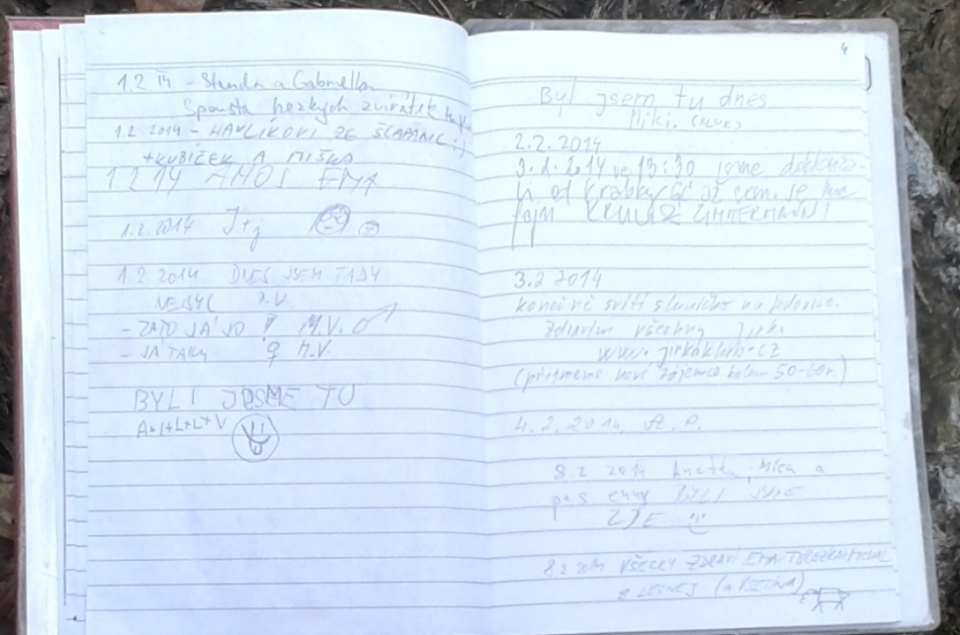 1.2 14 - Standa a Gabriella
Spousta hezkých zvířátek
1.2. 2014 - HAVLÍKOVI ZE ŠLAPANIC :)
+ KUBÍČEK A MIŠKA
1.2 14 AMOS EMA
1.2.2014 J+j
1.2 2014 DNES JSEM TADY
NEBYL P.V.
- ZATO JÁ JO M.V.
- JÁ TAKY ♀ M.V.
BYLI JSME TU
A+J+L+L+V
4
Byl jsem tu dnes
Miki. (KLUK)
2.2. 2014
3.2.2014 ve 13:30 jsme
od krabky GC je
fajn
3.2 2014
konečně svítí sluníčko na
Zdravím všechny Jirka
www.jirkaklimo.cz
(přijmeme nové zájemce kolem 50-60r.)
4.2.2014. A.P.
8.2 2014 Anežka, Míca a
pes BYLI JSME
ZDE
8.2 2014 VŠECKY ZDRAVÍ EMA
Z LESNEJ (a VSETÍNA)